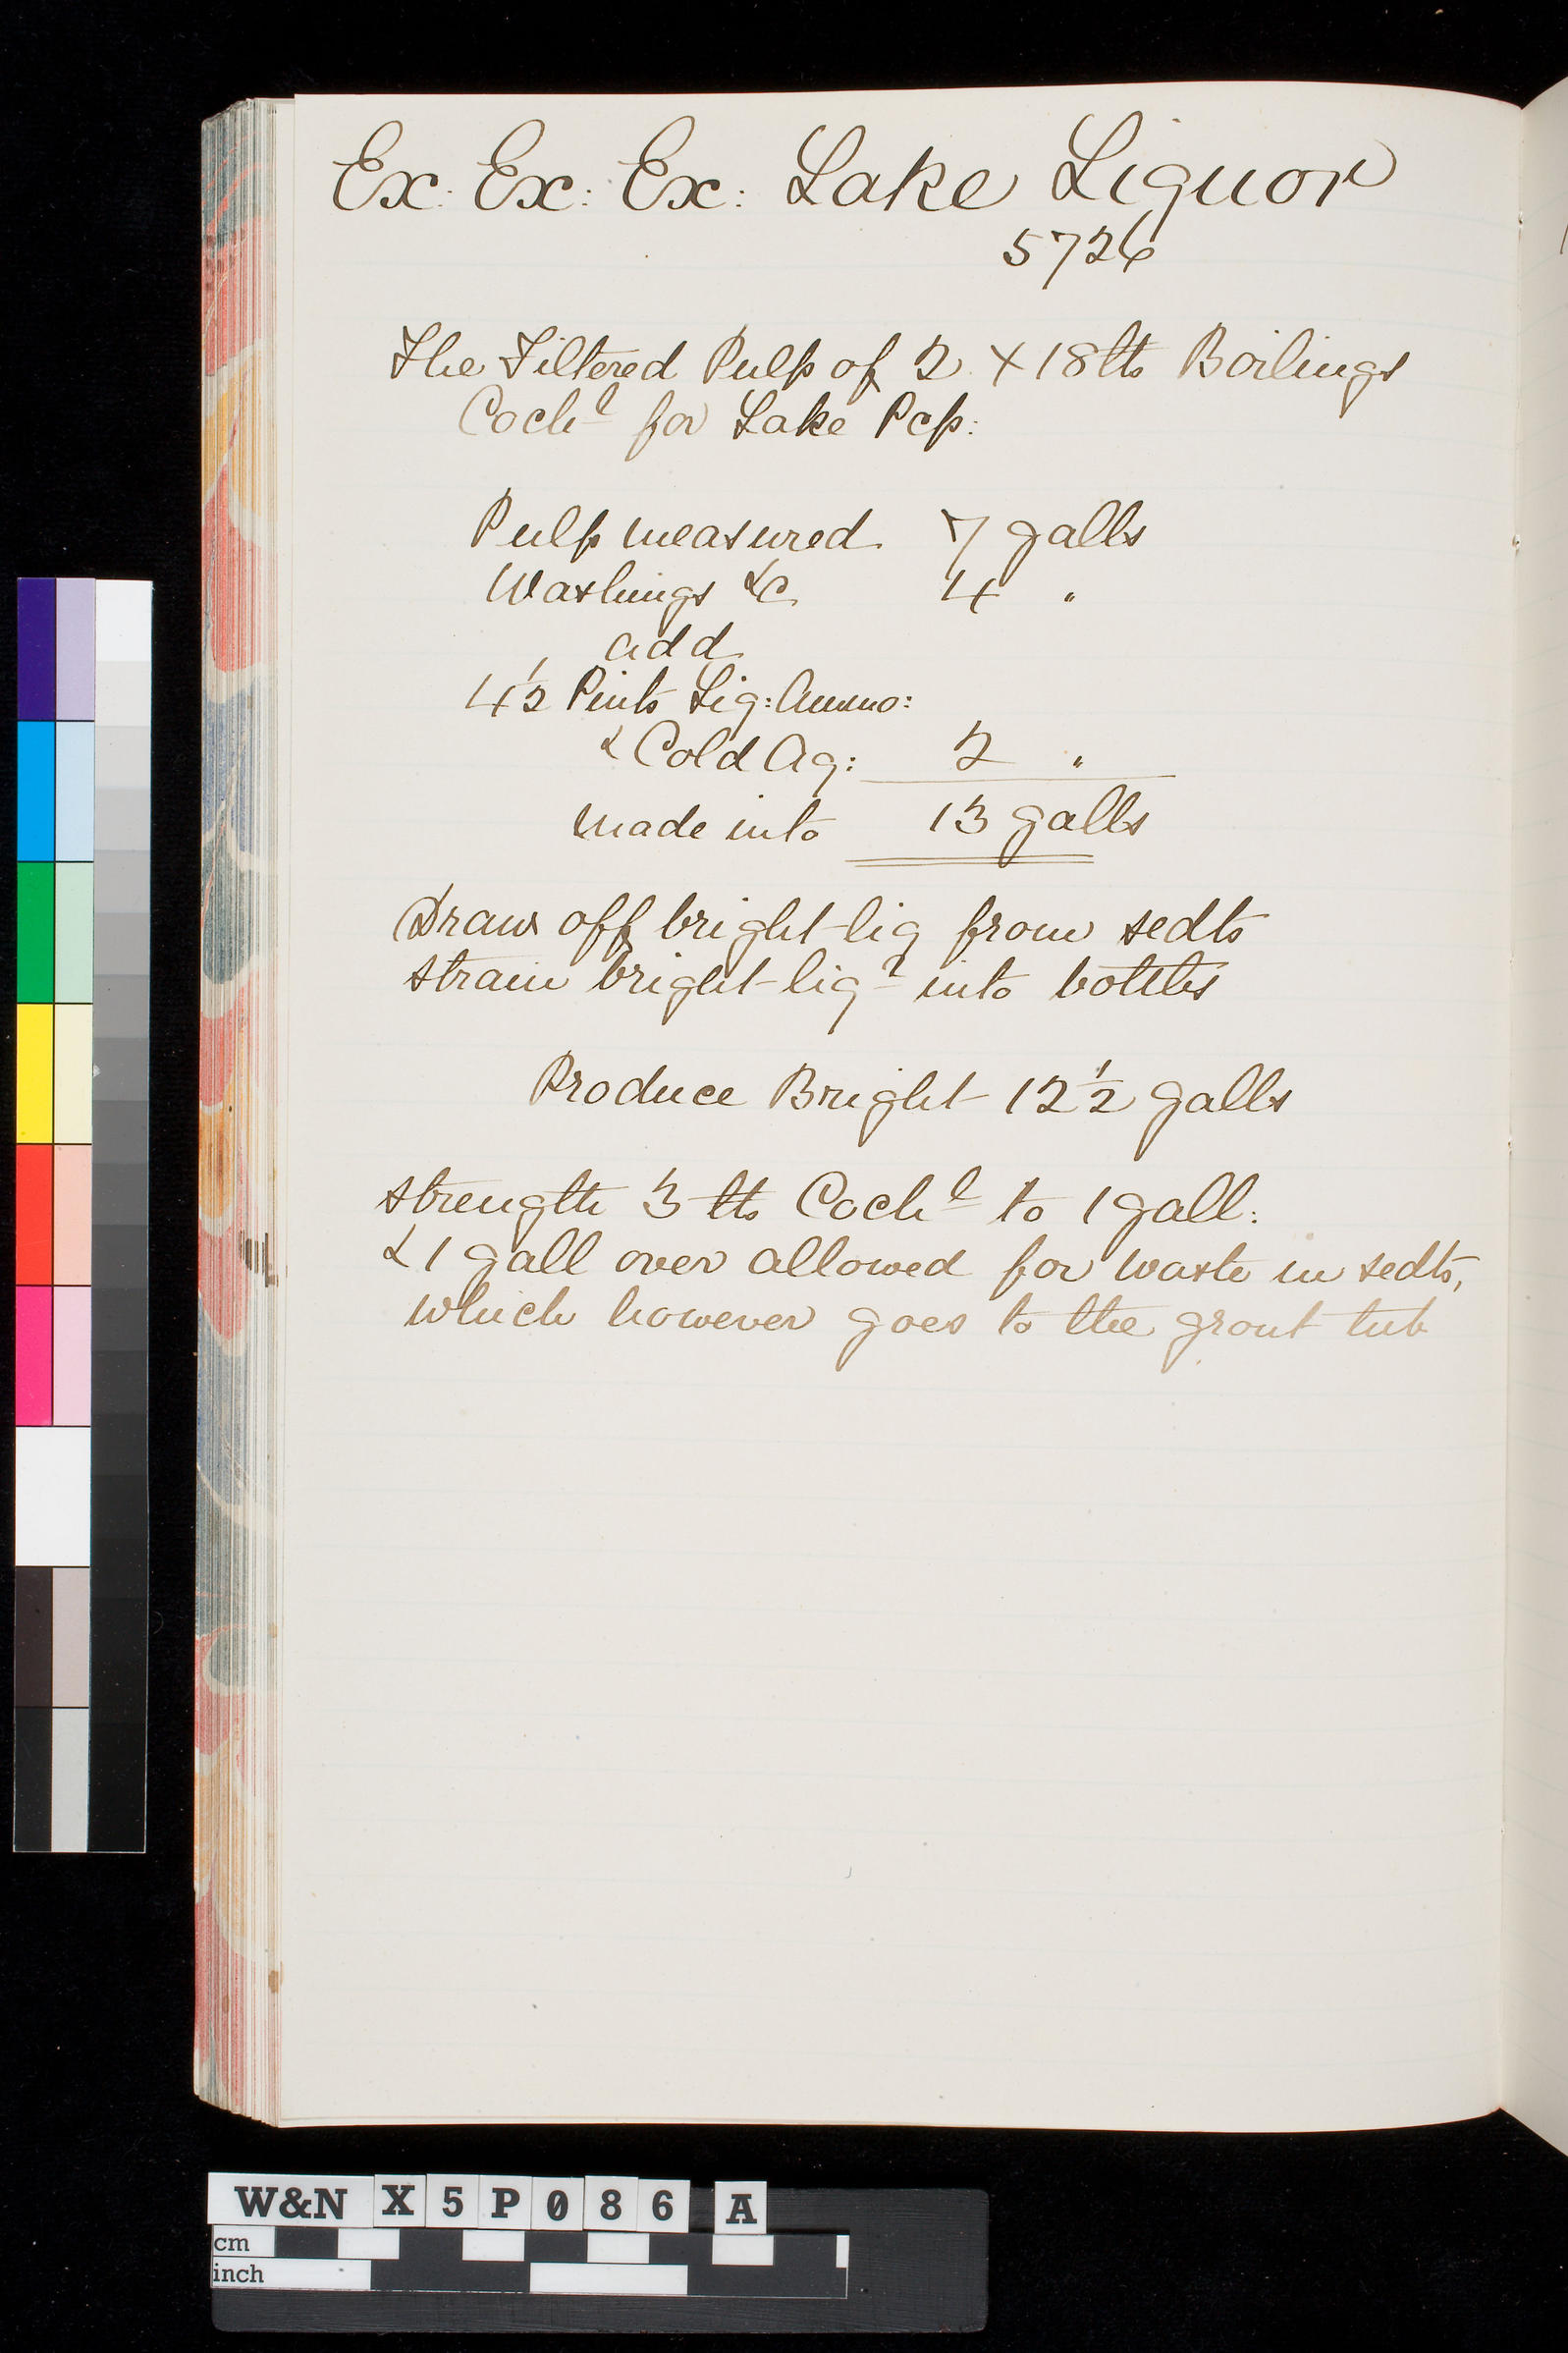 Ex: Ex: Ex: Lake Liquor
5726
The Filtered Pulp of 2 × 18 lbs Boilings
Cochl for Lake Pcp:
Pulp measured 7 galls
Washings &c 4 "
add
4 1/2 Pints Liq: Ammo:
& Cold Aq: 2 "
made into 13 galls
Draw off bright liq from sedts
strain bright liqr into bottles
Produce Bright 12 1/2 galls
strength 3 lbs Cochl to 1 gall:
& 1 gall over allowed for waste in sedts,
which however goes to the grout tub
W&N X 5 P 0 8 6 A
cm
inch